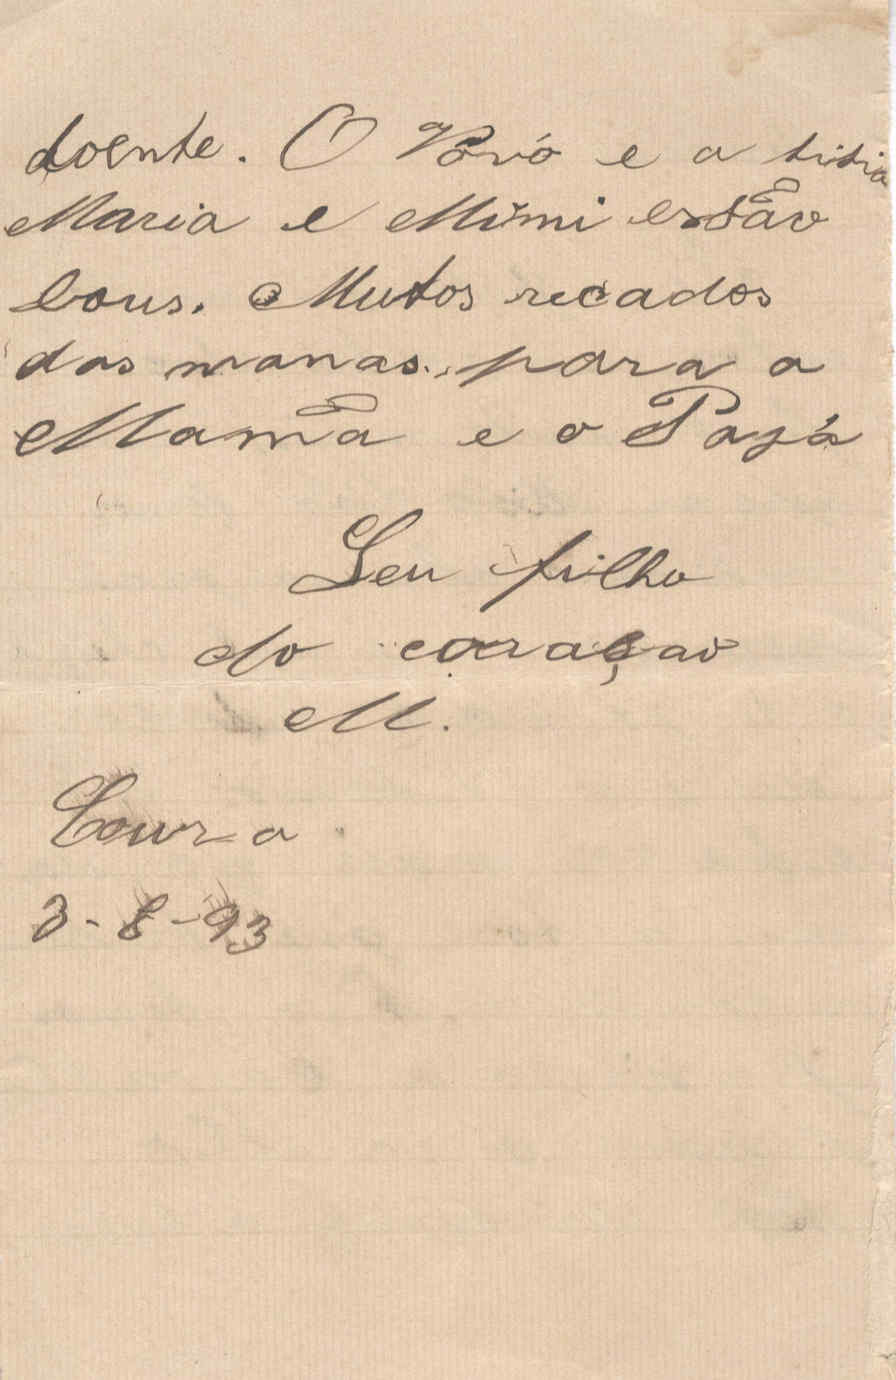 doente. O Vovó e a titia
Maria e Mimi estão
bons. Mutos recados
das manas para a
Mamã e o Papá
Seu filho
do coração
M.
Coura
3-8-93